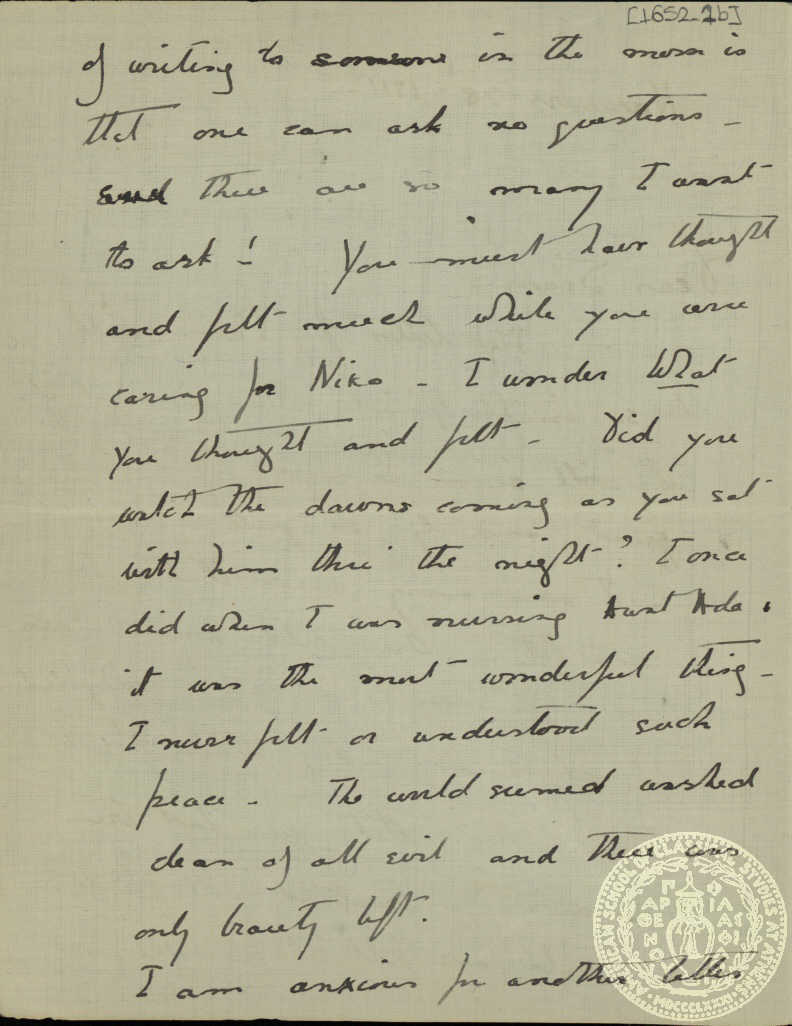 [1652-2b]
of writing to someone in the moon is
that one can ask no questions -
and there are so many I want
to ask! You must have thought
and felt much while you were
caring for Niko - I wonder what
you thought and felt - Did you
watch the dawns coming as you sat
with him thru' the night? I once
did when I was nursing Aunt Ada.
it was the most wonderful thing -
I never felt or understood such
peace - The world seemed washed
clean of all evil and there was
only beauty left.
I am anxious for another letter
AMERICAN SCHOOL OF CLASSICAL STUDIES AT ATHENS
MDCCCLXXXI
ΠΑΡΘΕΝΟΥ
ΦΙΛΑΣ